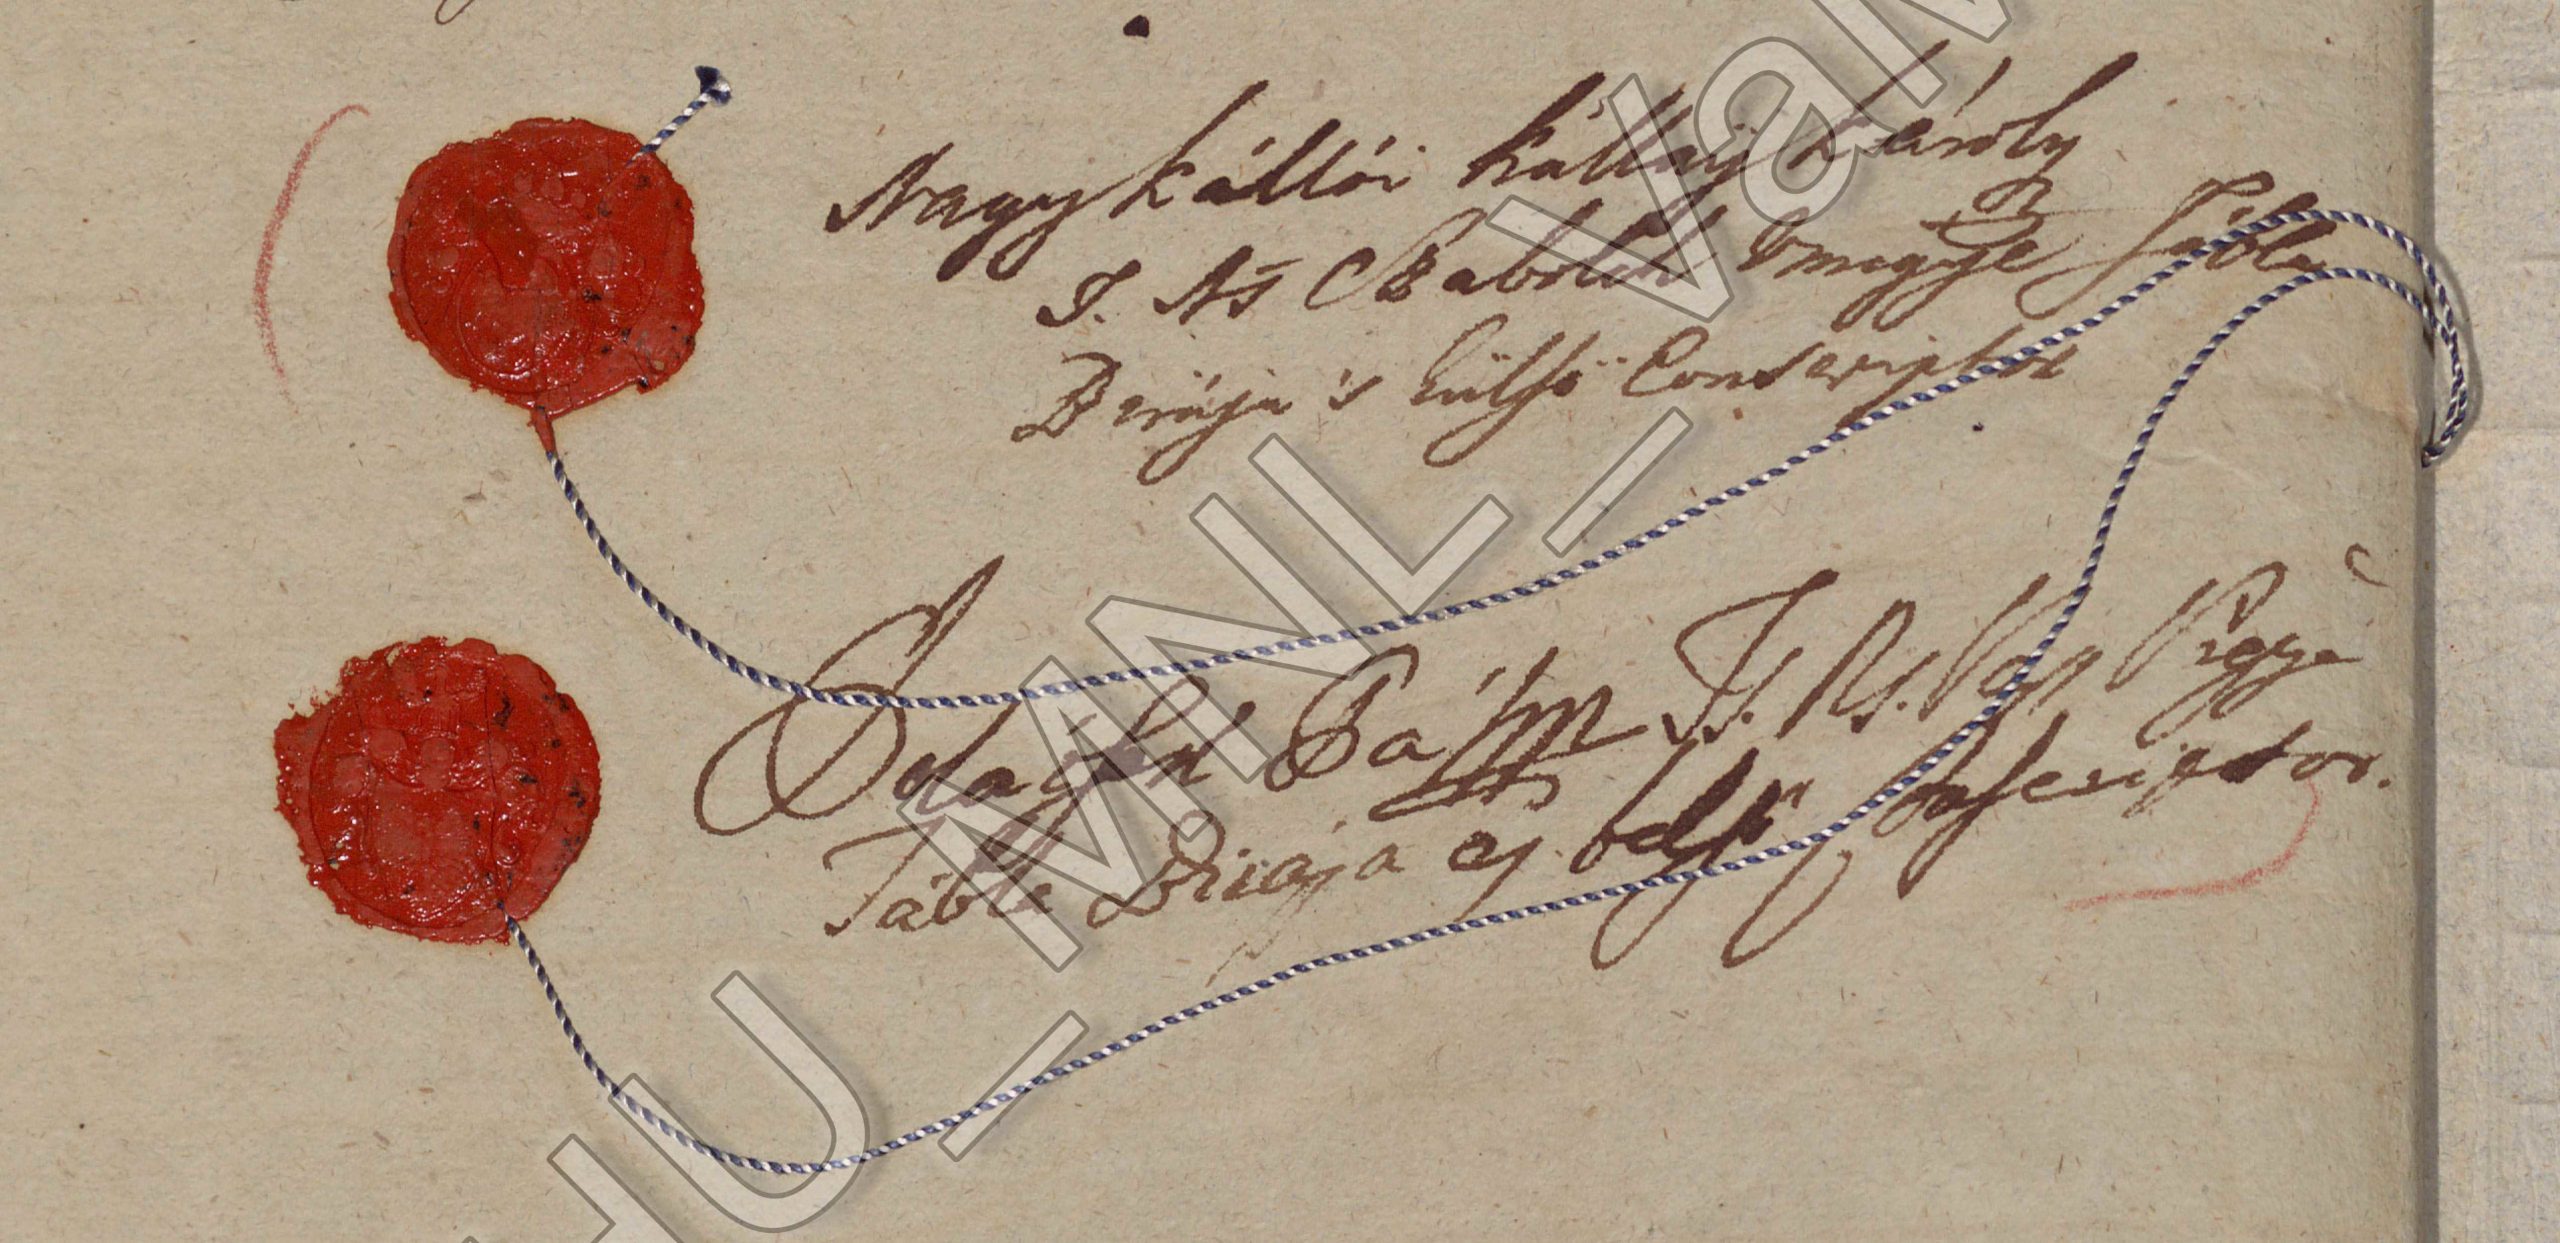 Nagy Kállói Kállay Károly
T. Ns Szabolch Vmegye Tábla
Birája 's külső Conscriptor
Pál T. N. Vár Vgye
Tábla Birája es belső Conscriptor.
HU_MNL_VaM